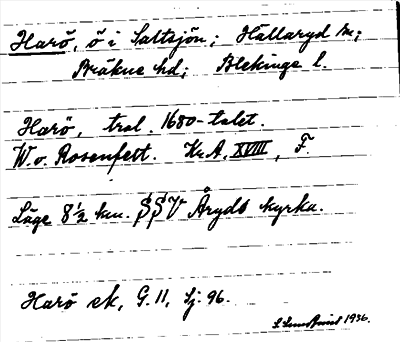 Harö, ö i Saltsjön; Hällaryd sn;
Bräkne hd; Blekinge l.
Harö, trol. 1680-talet.
W. v. Rosenfelt. Kr.A. XVIII, F.
Läge 8½ km. SSV Åryds kyrka.
Harö ek, G. 11, Sj. 96.
1936.